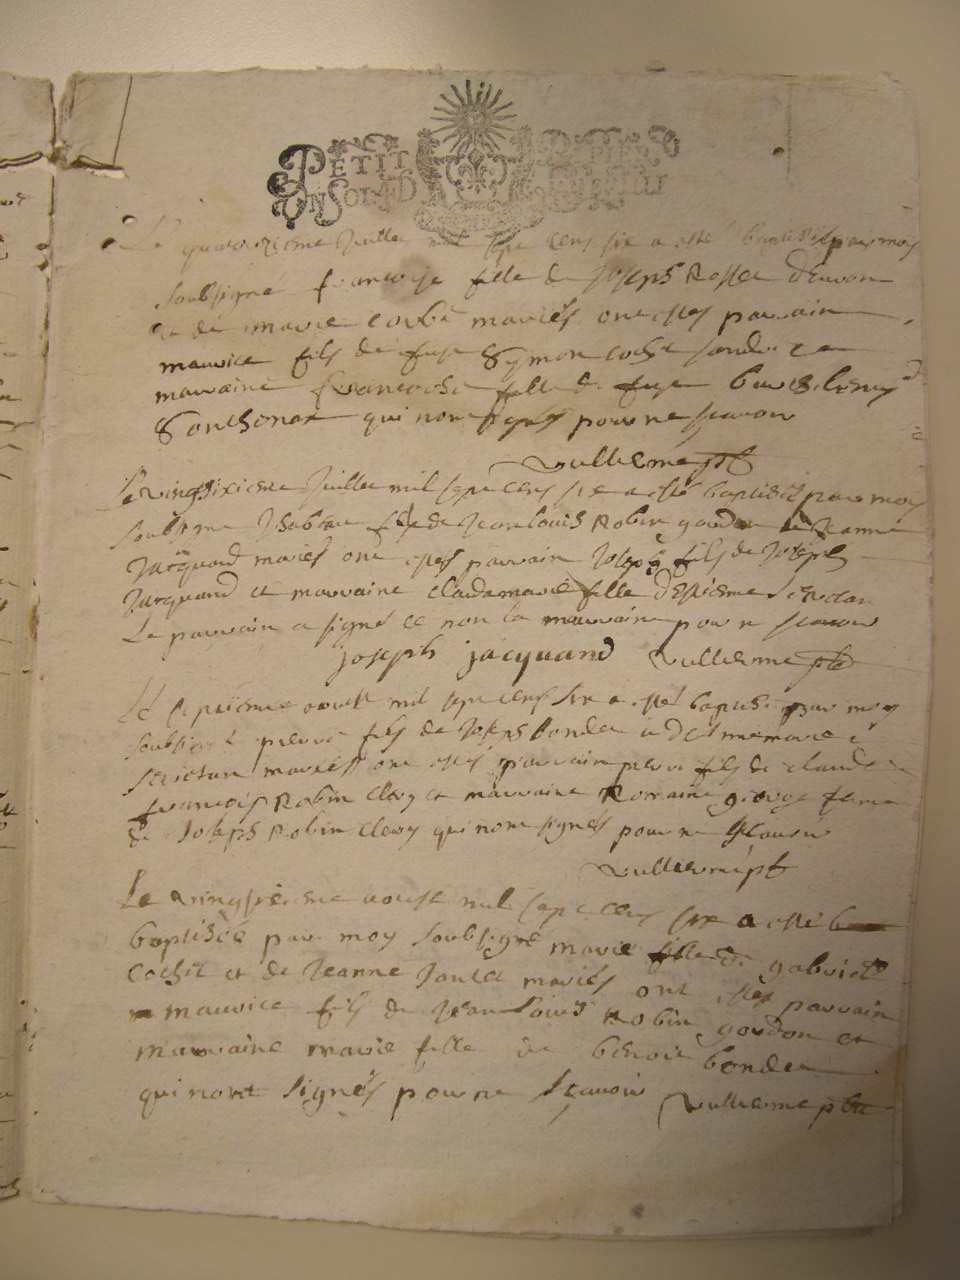 PETIT PAPIER
UN SOL 4D
Le quatorzieme Juillet mil sept cens six a esté baptisée par moy
soubsigné françoise fille de Joseph Rosset d'
et de marie mariés ont estes parrain
maurice fils de fust Symon cochet
marraine francoise fille de fust
qui nont signes pour ne scavoir
Vulliermet ptre
Le vingsixieme Juillet mil sept cens six a esté baptisée par moy
soubsigné Isabeau fille de Jean louis Robin gordon et Jeanne
Jacquand mariés ont estes parrain Joseph fils de Joseph
Jacquand et marraine claudamarie fille d'Estienne
Le parrain a signé et non la marraine pour ne scavoir
joseph jacquand Vulliermet ptre
Le septieme aoust mil sept cens six a esté baptisé par moy
soubsigné pierre fils de Joseph bondet
mariés ont estes parrain pierre fils de claude
francois Robin clerc et marraine Romaine george feme
de Joseph Robin clerc qui nont signés pour ne scavoir
Vulliermet ptre
Le vingsixieme aoust mil sept cens six a esté
baptisée par moy soubsigné marie fille de gabriel
cochet et de Jeanne mariés ont estes parrain
maurice fils de Jean Louis Robin gordon et
marraine marie fille de benoit bondet
qui nont signés pour ne scavoir Vulliermet ptre